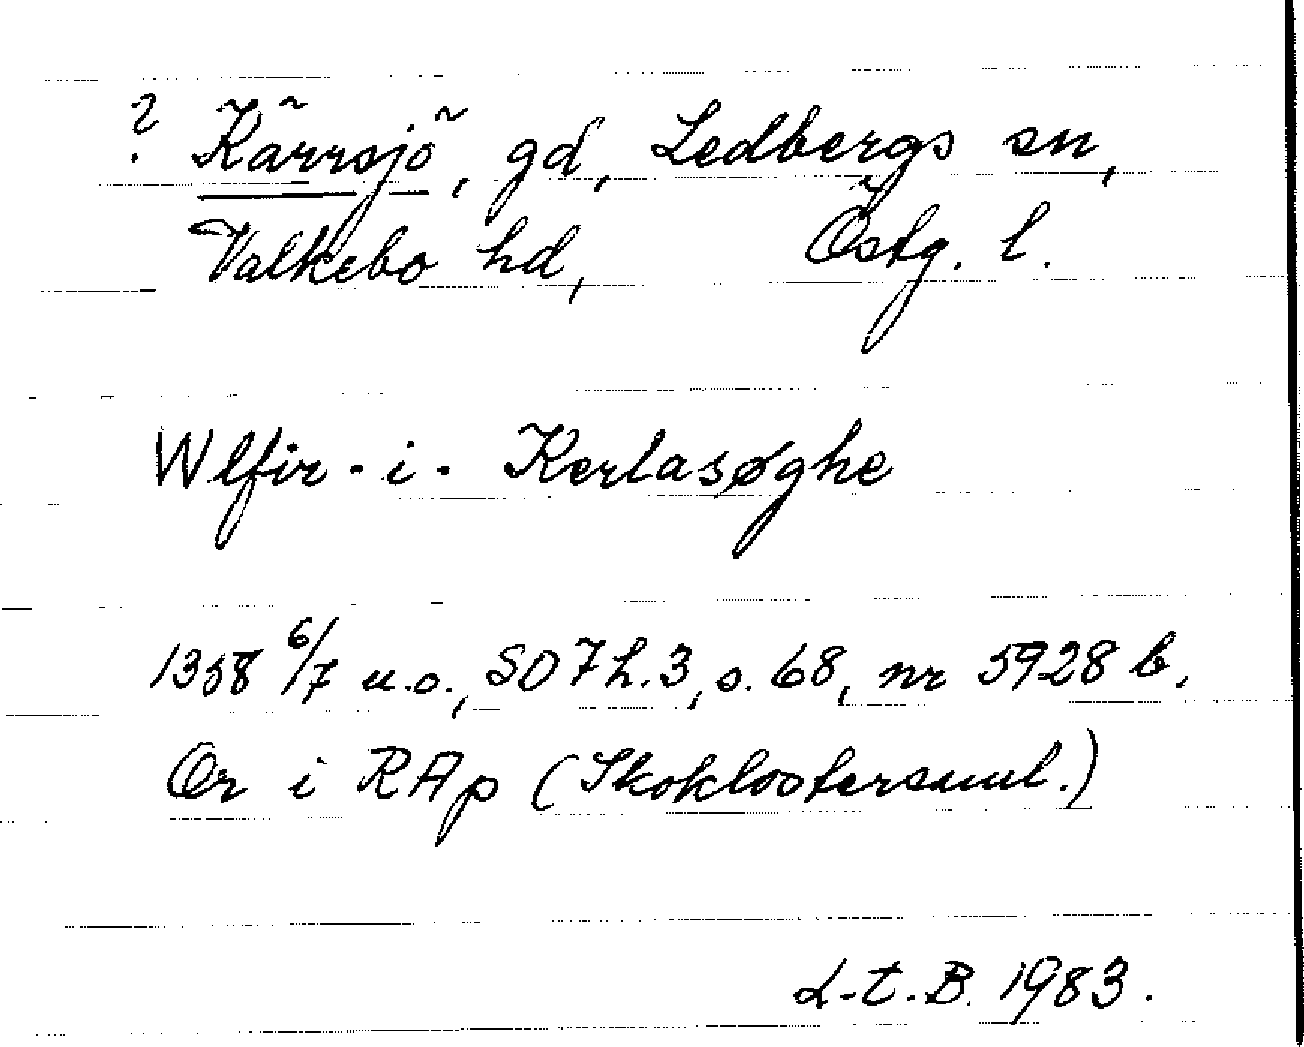 ? Kärrsjö, gd, Ledbergs sn,
Valkebo hd, Östg. l.
Wlfir · i · Kerlasøghe
1358 6/7 u.o., SD 7 h. 3, s. 68, nr 5928 b.
Or i RAp (Skoklostersaml.)
L.t.B. 1983.